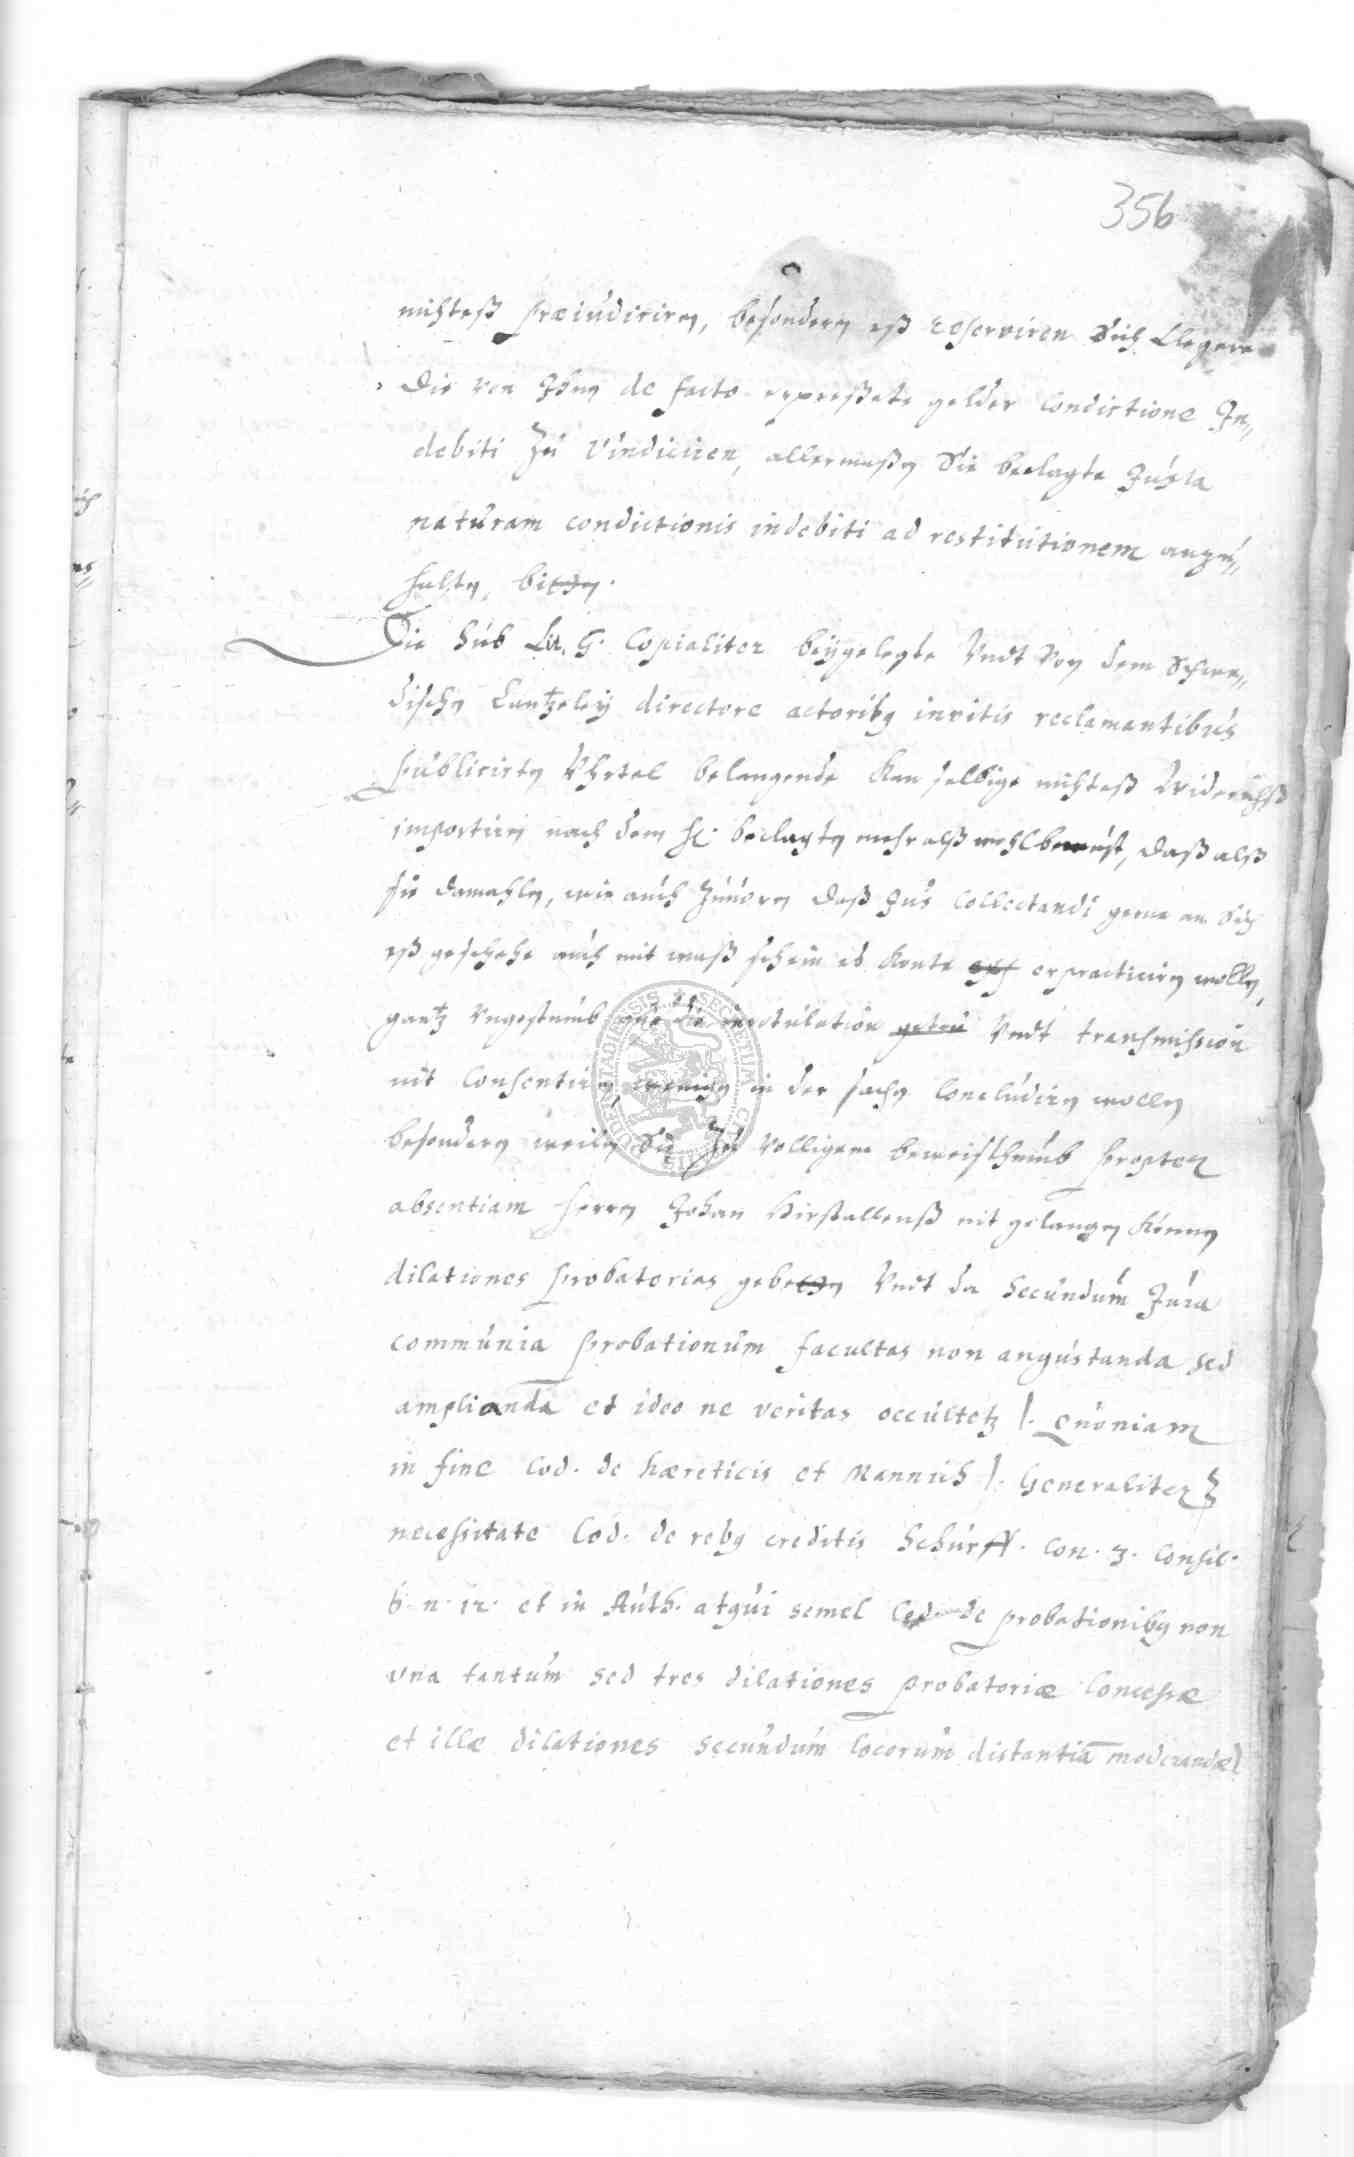 356
nichteß præiudiciren, besondern eß reserviren Sich Clegere
Die von Ihnen de facto erpreßete gelder condictione In„
debiti Zu Vindiciren, allermaßen Sie beclagte Juxta
naturam condictionis indebiti ad restitutionem anzu„
halten, bitten.
Die sub Lit. G. Copialiter beÿgelegte Vndt Von dem Schwe„
dischen Cantzeleÿ directore actoribus invitis reclamantibus
publicirten Vhrtel belangende Kan selbige nichteß Widerichß
importiren nach dem H. beclagten mehr alß wohl bewust, daß alß
sie damahlen, wie auch Zuuorn daß Jus Collectandi gerne an Sich
eß geschehe auch mit waß schein eß Konte erpracticiren wollen,
gantz Vngestumb die inrotulation Vndt transmission
nit Consentiren, wenig in der sachen Concludiren wollen
besondern weiln Sie Zu Volligem beweisthumb propter
absentiam Herrn Johan nit gelangen Können
dilationes probatorias gebetten Vndt da Secundum Jura
communia probationum facultas non angustanda sed
amplianda et ideo ne veritas occultetur l. quoniam
in fine Cod. de hæreticis et Mannich l. Generaliter 3
necessitate Cod. de rebus creditis Schurff. Con. 3. Consil.
6. n. 12. et in Auth. atqui semel Cod. de probationibus non
vna tantum sed tres dilationes probatoriæ Concessæ
et illæ dilationes secundum locorum distantiã moderandæ
SECRETUM